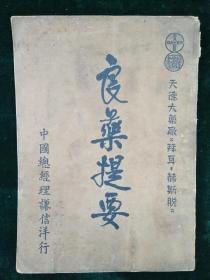 天德大藥廠"拜耳"赫斯脱"
良藥提要
中國總經理謙信洋行